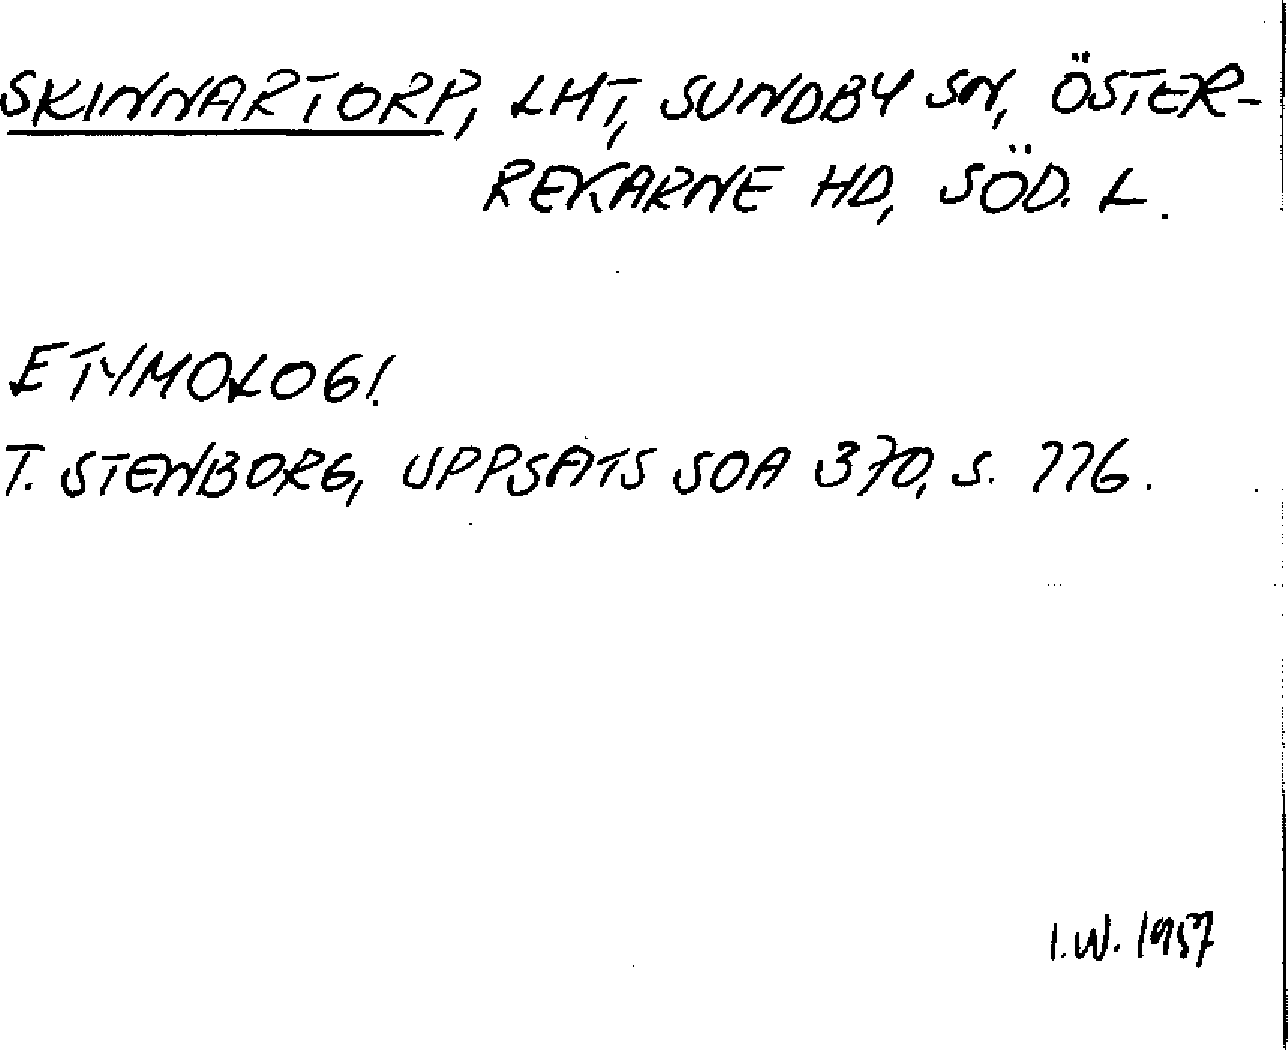 SKINNARTORP, LHT, SUNDBY SN, ÖSTER-
REKARNE HD, SÖD. L.
ETYMOLOGI.
T. STENBORG, UPPSATS SOA 370, S. 776.
I.W. 1957